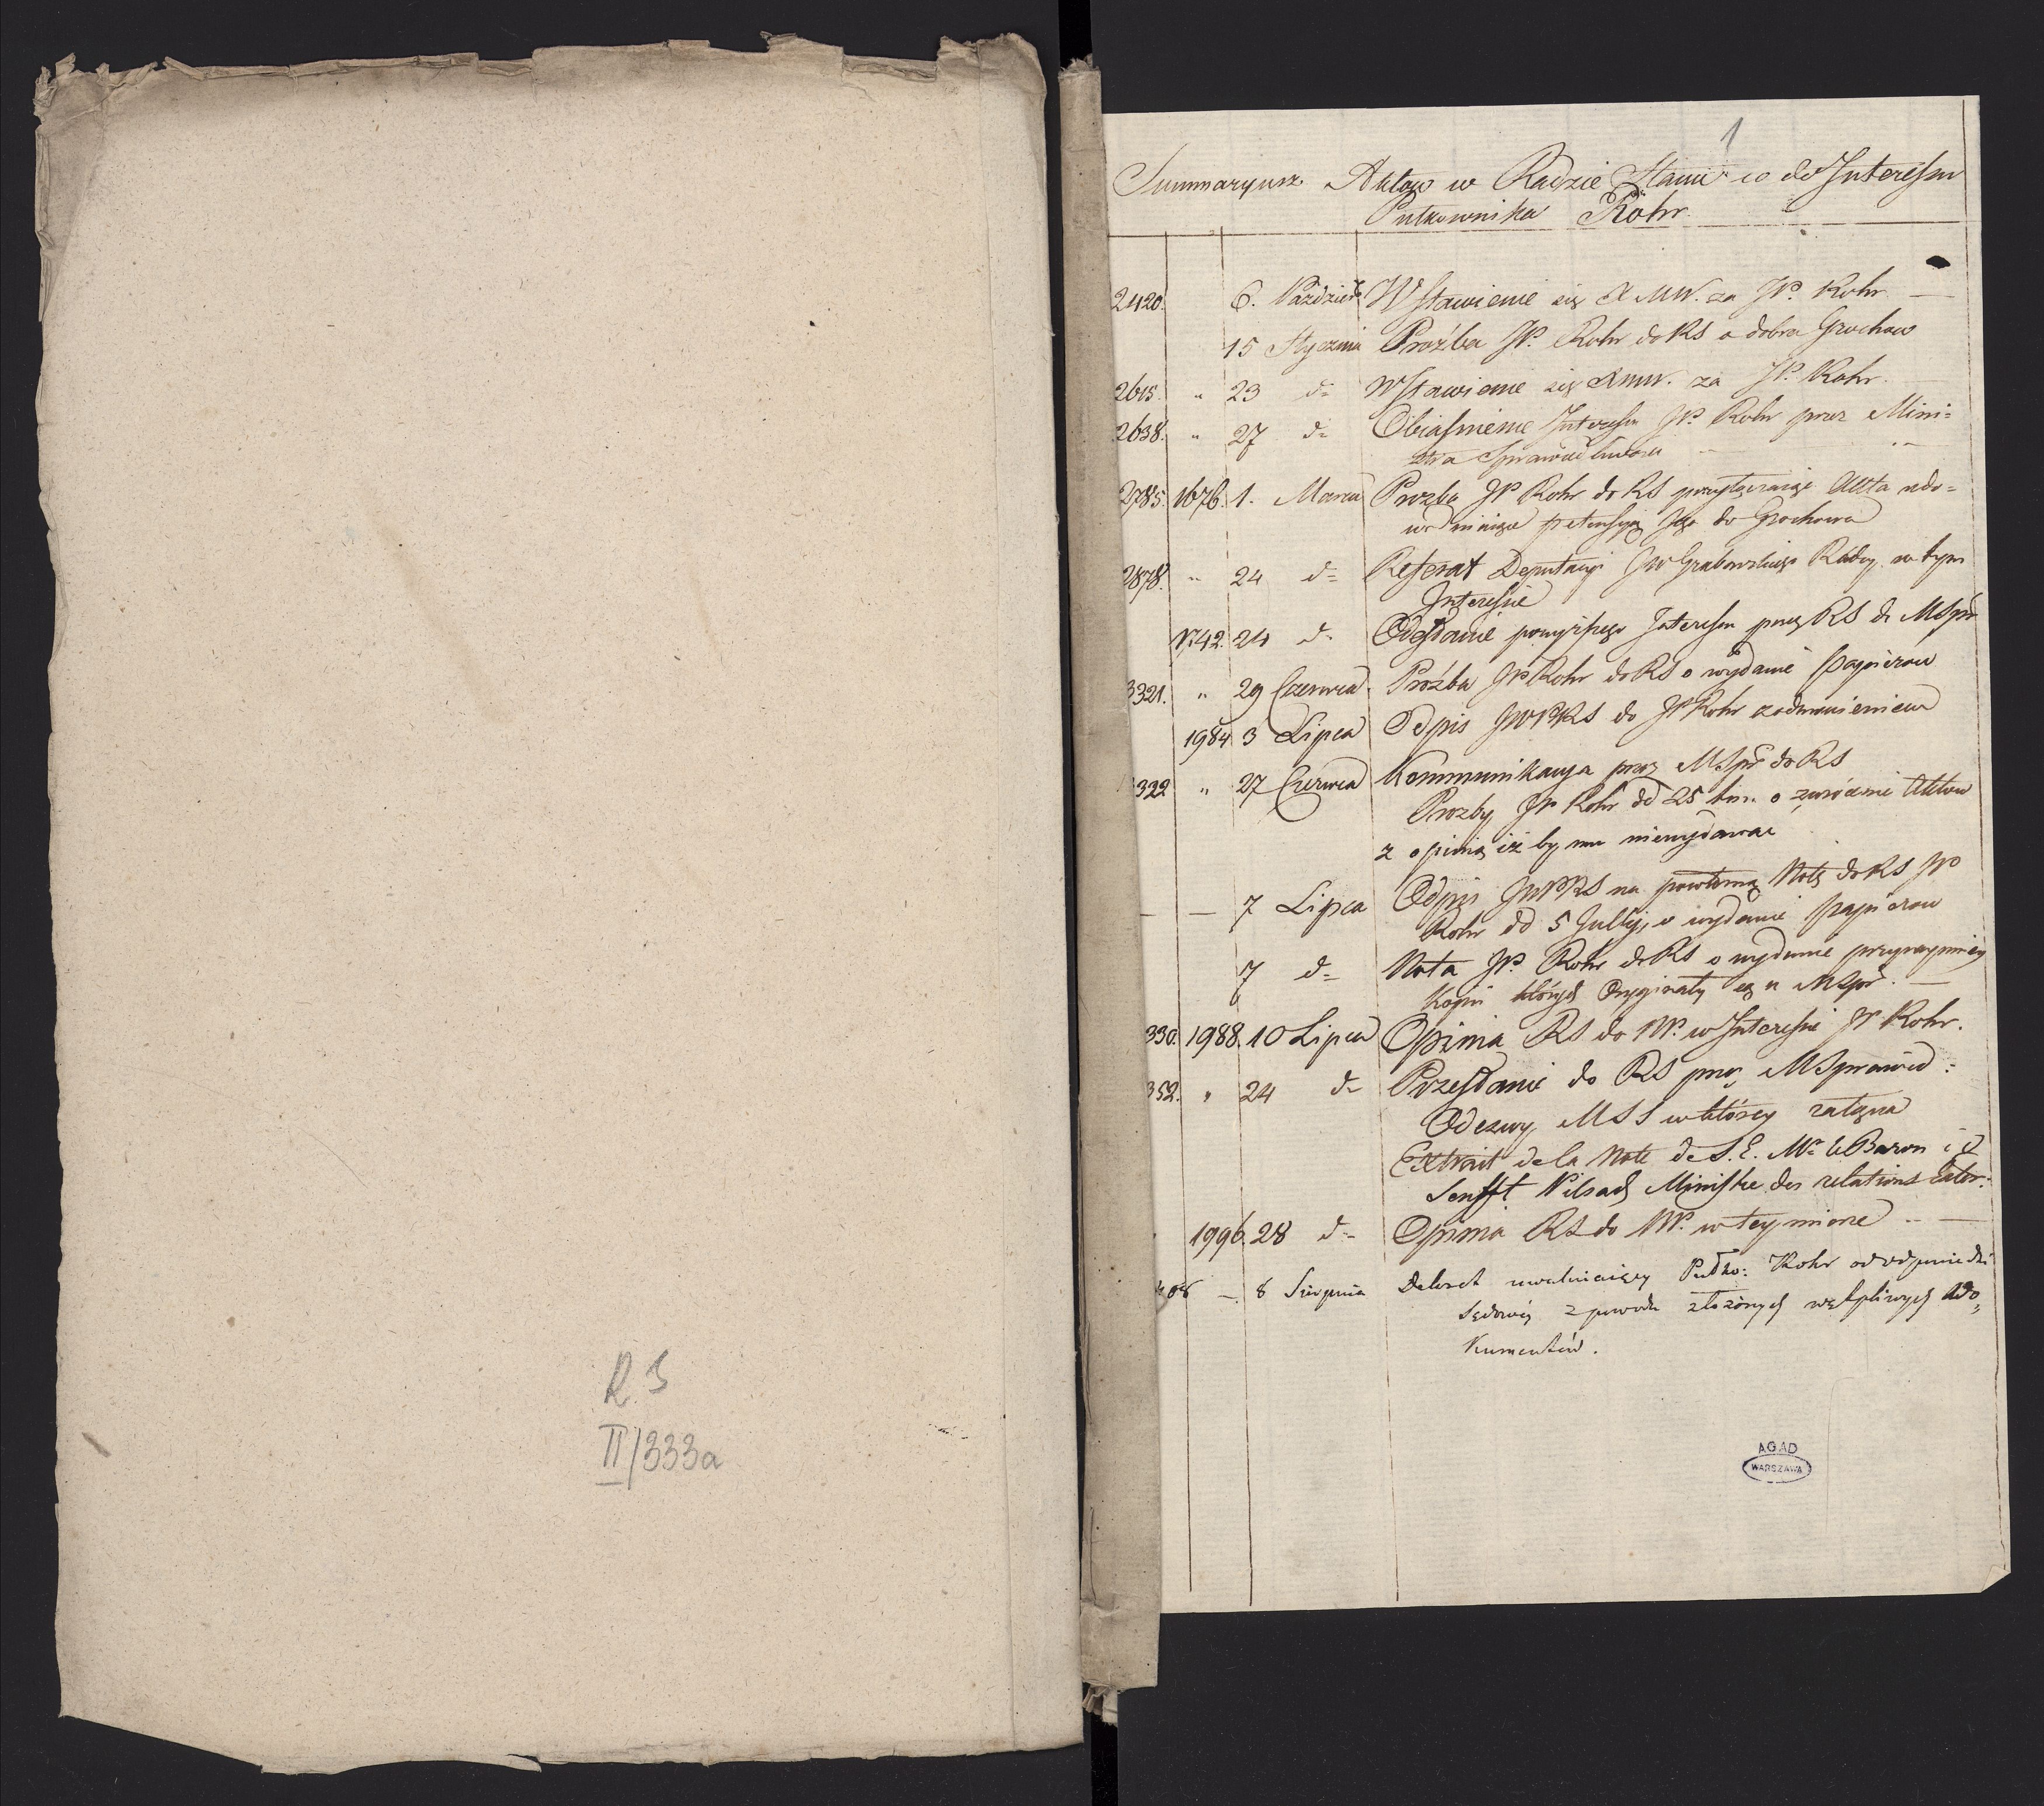 R. S
II/333a
1
Summaryusz Aktow w Radzie Stanu co do Interessu
Pułkownika Röhr.
2420. 6. Paździer: Wstawienie się XMW. za JP. Rohr —
15 Stycznia Proźba JP. Rohr do RS o dobra Grochow
2615. " 23 d= Wstawienie się XMW. za JP. Rohr.
2638. " 27 d= Obiaśnienie Interessu JP. Rohr przez Mini=
stra Sprawiedliwości
2785. 1676. 1. Marca Prozba JP Rohr do RS przyłączaiąc Akta udo=
wadniaiące pretensyą Jego do Grochowa
2878. " 24 d= Referat Deputacyi JW Grabowskiego Radcy w tym
Interesie
1742. 24 d= Odesłanie powyższego Interessu przez RS do MSpr
3321. " 29 Czerwca Proźba JP Rohr do RS o wydanie Papierow
1984 3 Lipca Odpis JWPRS do JP Rohr z odmowieniem
3322 " 27 Czerwca Kommunikacya przez MSpr do RS
Prozby JP Rohr dd 25 t.m. o zwrócenie Aktow
z opinią iż by mu niewydawać
— — 7 Lipca Odpis JWPRS na powtorną Notę do RS JP
Rohr dd 5 Julij, o wydanie Papierow
7 d= Nota JP. Rohr do RS o wydanie przynaymniey
Kopii których Oryginały są u MSpr. —
330. 1988. 10 Lipca Opinia RS do NP. w Interesie JP Rohr.
352. " 24 d= Przesłanie do RS przez MSprawied:
Odezwy MSS w którey załącza
Extrait de la Note de S. E. Mr le Baron
Senfft Pilsach Ministre des relations exter:
1996. 28 d= Opinia RS do NP. w tey mierze — —
408 — 8 Sierpnia Dekret uwalniaiący Pułko: Rohr od odpowiedzi
Sądowéy z powodu złożonych wątpliwych do=
kumentów.
AGAD
WARSZAWA